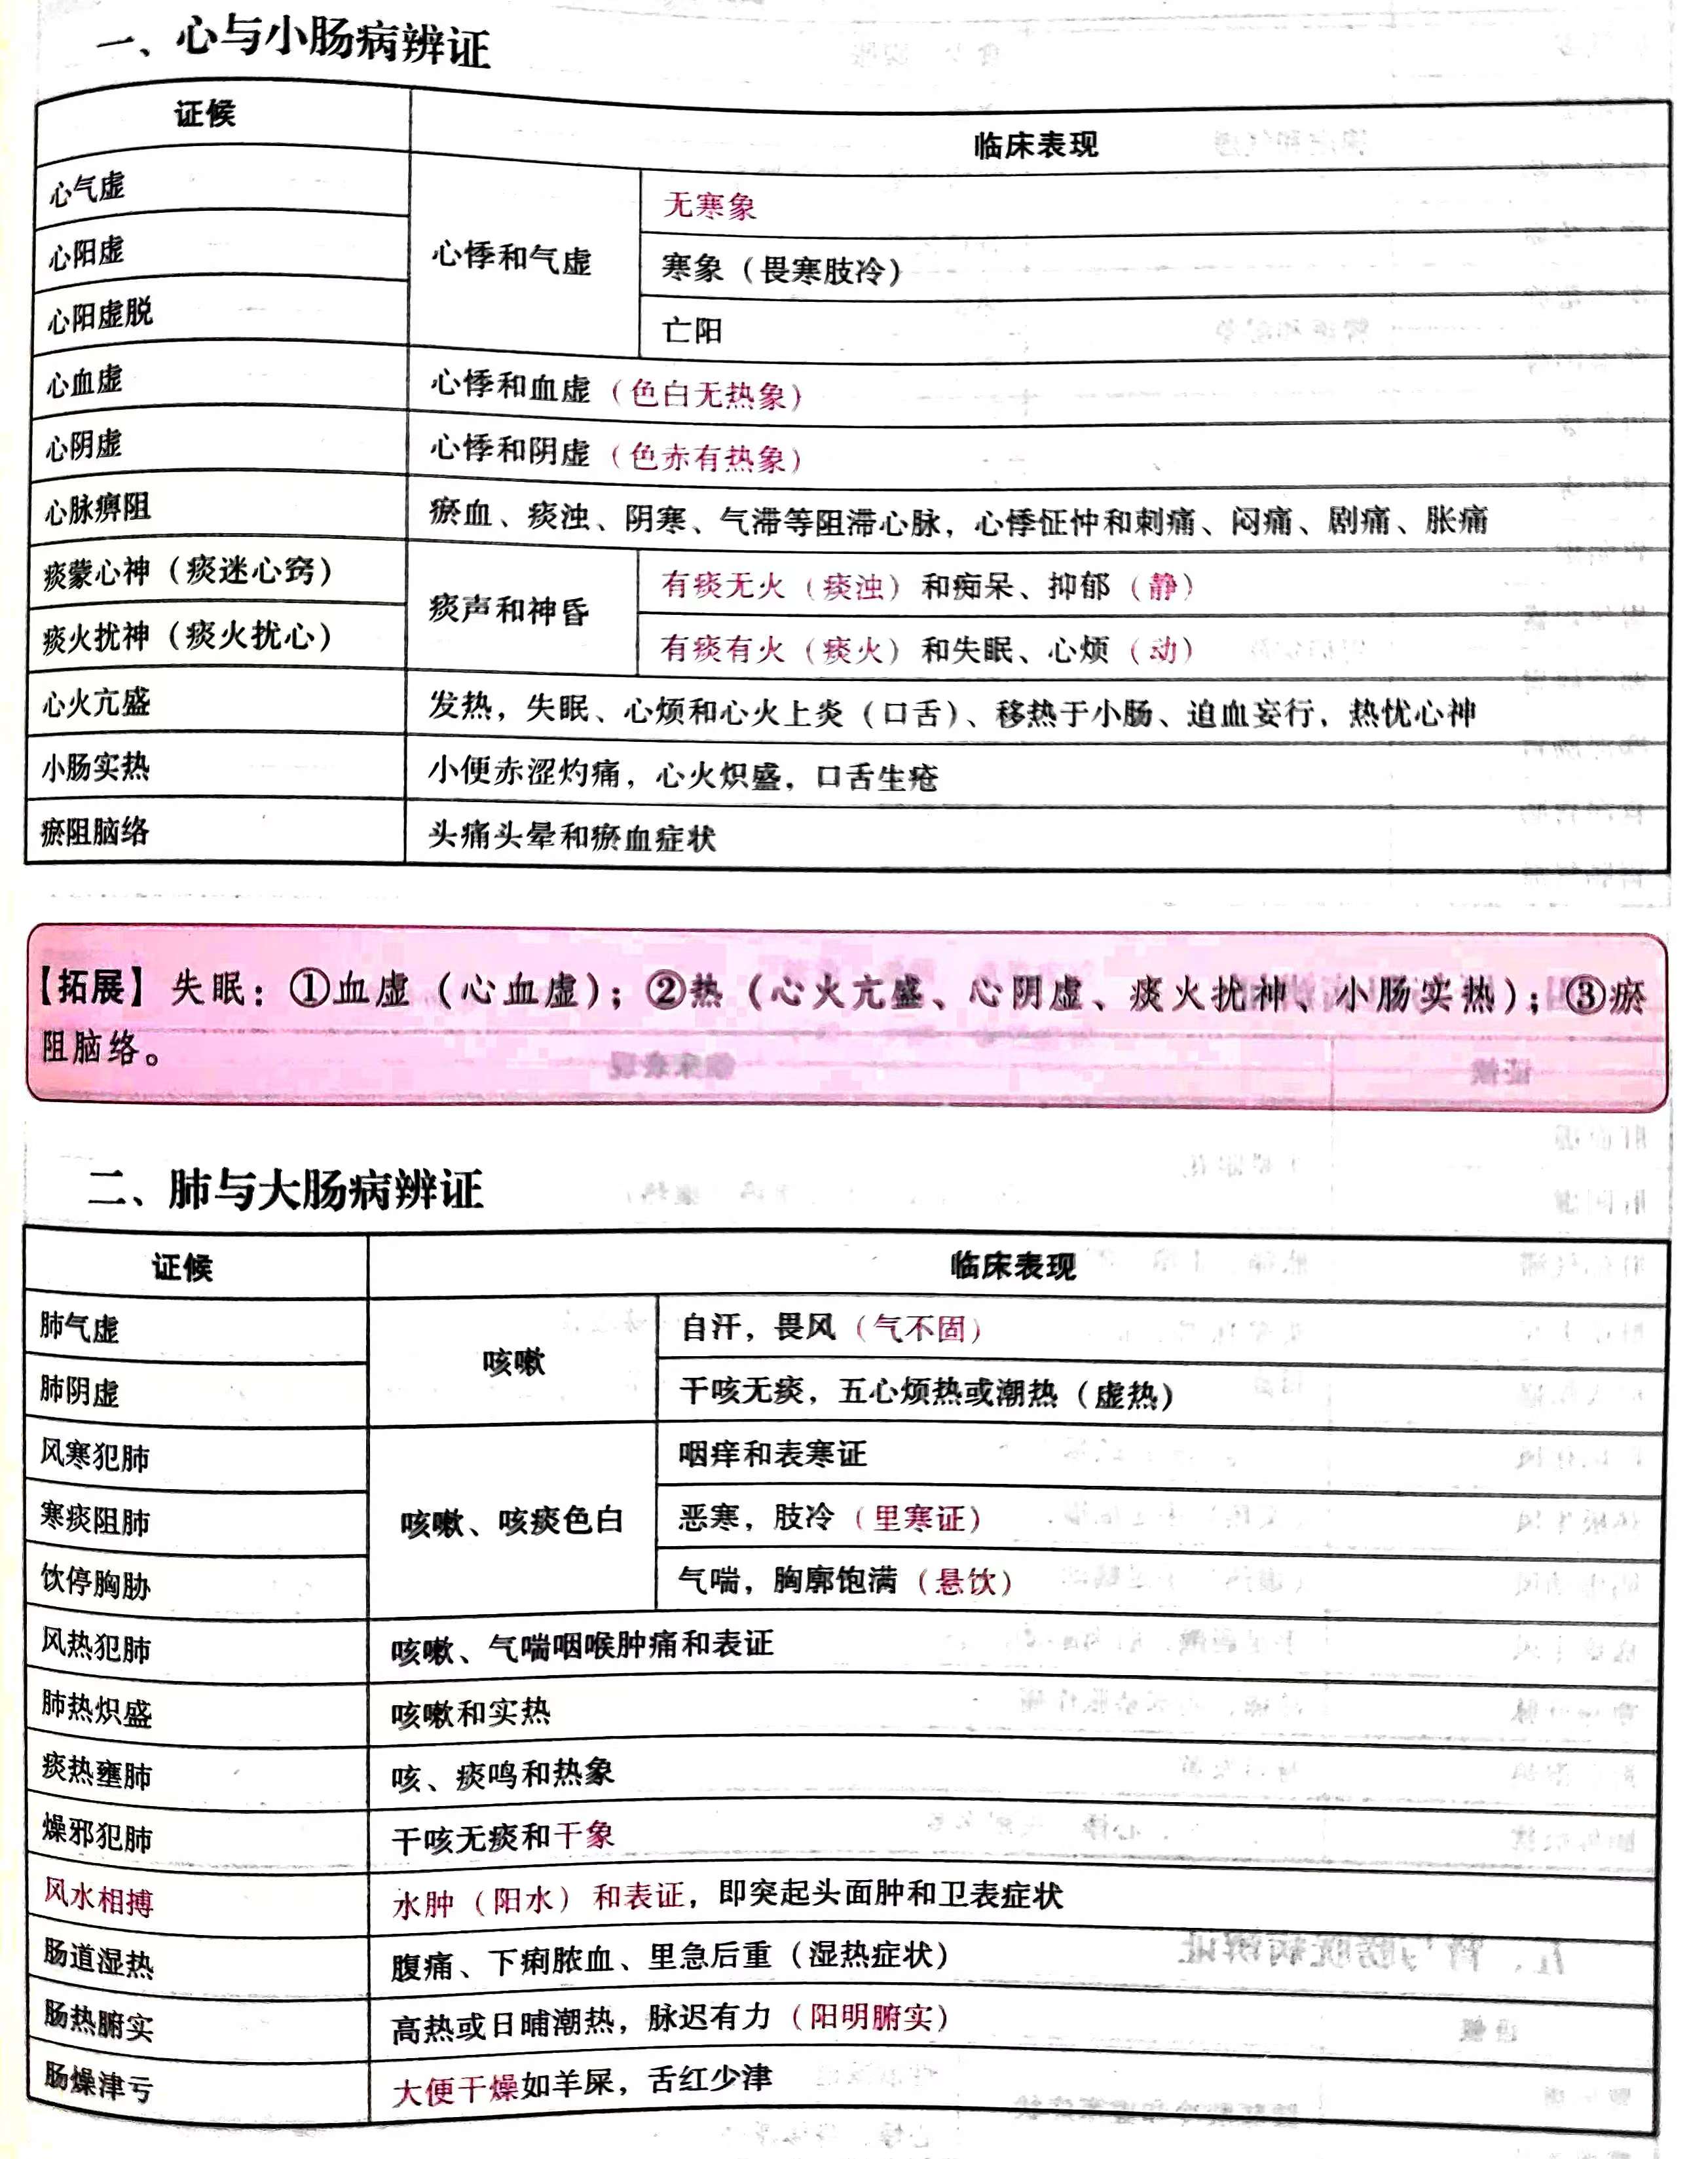 一、心与小肠病辨证
证候 临床表现
心气虚 心悸和气虚 无寒象
心阳虚 寒象（畏寒肢冷）
心阳虚脱 亡阳
心血虚 心悸和血虚（色白无热象）
心阴虚 心悸和阴虚（色赤有热象）
心脉痹阻 瘀血、痰浊、阴寒、气滞等阻滞心脉，心悸怔忡和刺痛、闷痛、剧痛、胀痛
痰蒙心神（痰迷心窍） 痰声和神昏 有痰无火（痰浊）和痴呆、抑郁（静）
痰火扰神（痰火扰心） 有痰有火（痰火）和失眠、心烦（动）
心火亢盛 发热，失眠、心烦和心火上炎（口舌）、移热于小肠、迫血妄行，热忧心神
小肠实热 小便赤涩灼痛，心火炽盛，口舌生疮
瘀阻脑络 头痛头晕和瘀血症状
【拓展】失眠：①血虚（心血虚）；②热（心火亢盛、心阴虚、痰火扰神、小肠实热）；③瘀
阻脑络。
二、肺与大肠病辨证
证候 临床表现
肺气虚 咳嗽 自汗，畏风（气不固）
肺阴虚 干咳无痰，五心烦热或潮热（虚热）
风寒犯肺 咳嗽、咳痰色白 咽痒和表寒证
寒痰阻肺 恶寒，肢冷（里寒证）
饮停胸胁 气喘，胸廓饱满（悬饮）
风热犯肺 咳嗽、气喘咽喉肿痛和表证
肺热炽盛 咳嗽和实热
痰热壅肺 咳、痰鸣和热象
燥邪犯肺 干咳无痰和干象
风水相搏 水肿（阳水）和表证，即突起头面肿和卫表症状
肠道湿热 腹痛、下痢脓血、里急后重（湿热症状）
肠热腑实 高热或日晡潮热，脉迟有力（阳明腑实）
肠燥津亏 大便干燥如羊屎，舌红少津